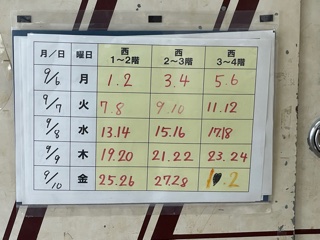 月／日 曜日 西 1～2階 西 2～3階 西 3～4階
9/6 月 1.2 3.4 5.6
9/7 火 7.8 9.10 11.12
9/8 水 13.14 15.16 17.18
9/9 木 19.20 21.22 23.24
9/10 金 25.26 27.28 1.2